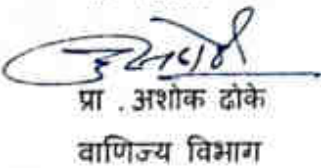 प्रा . अशोक ढोके
वाणिज्य विभाग